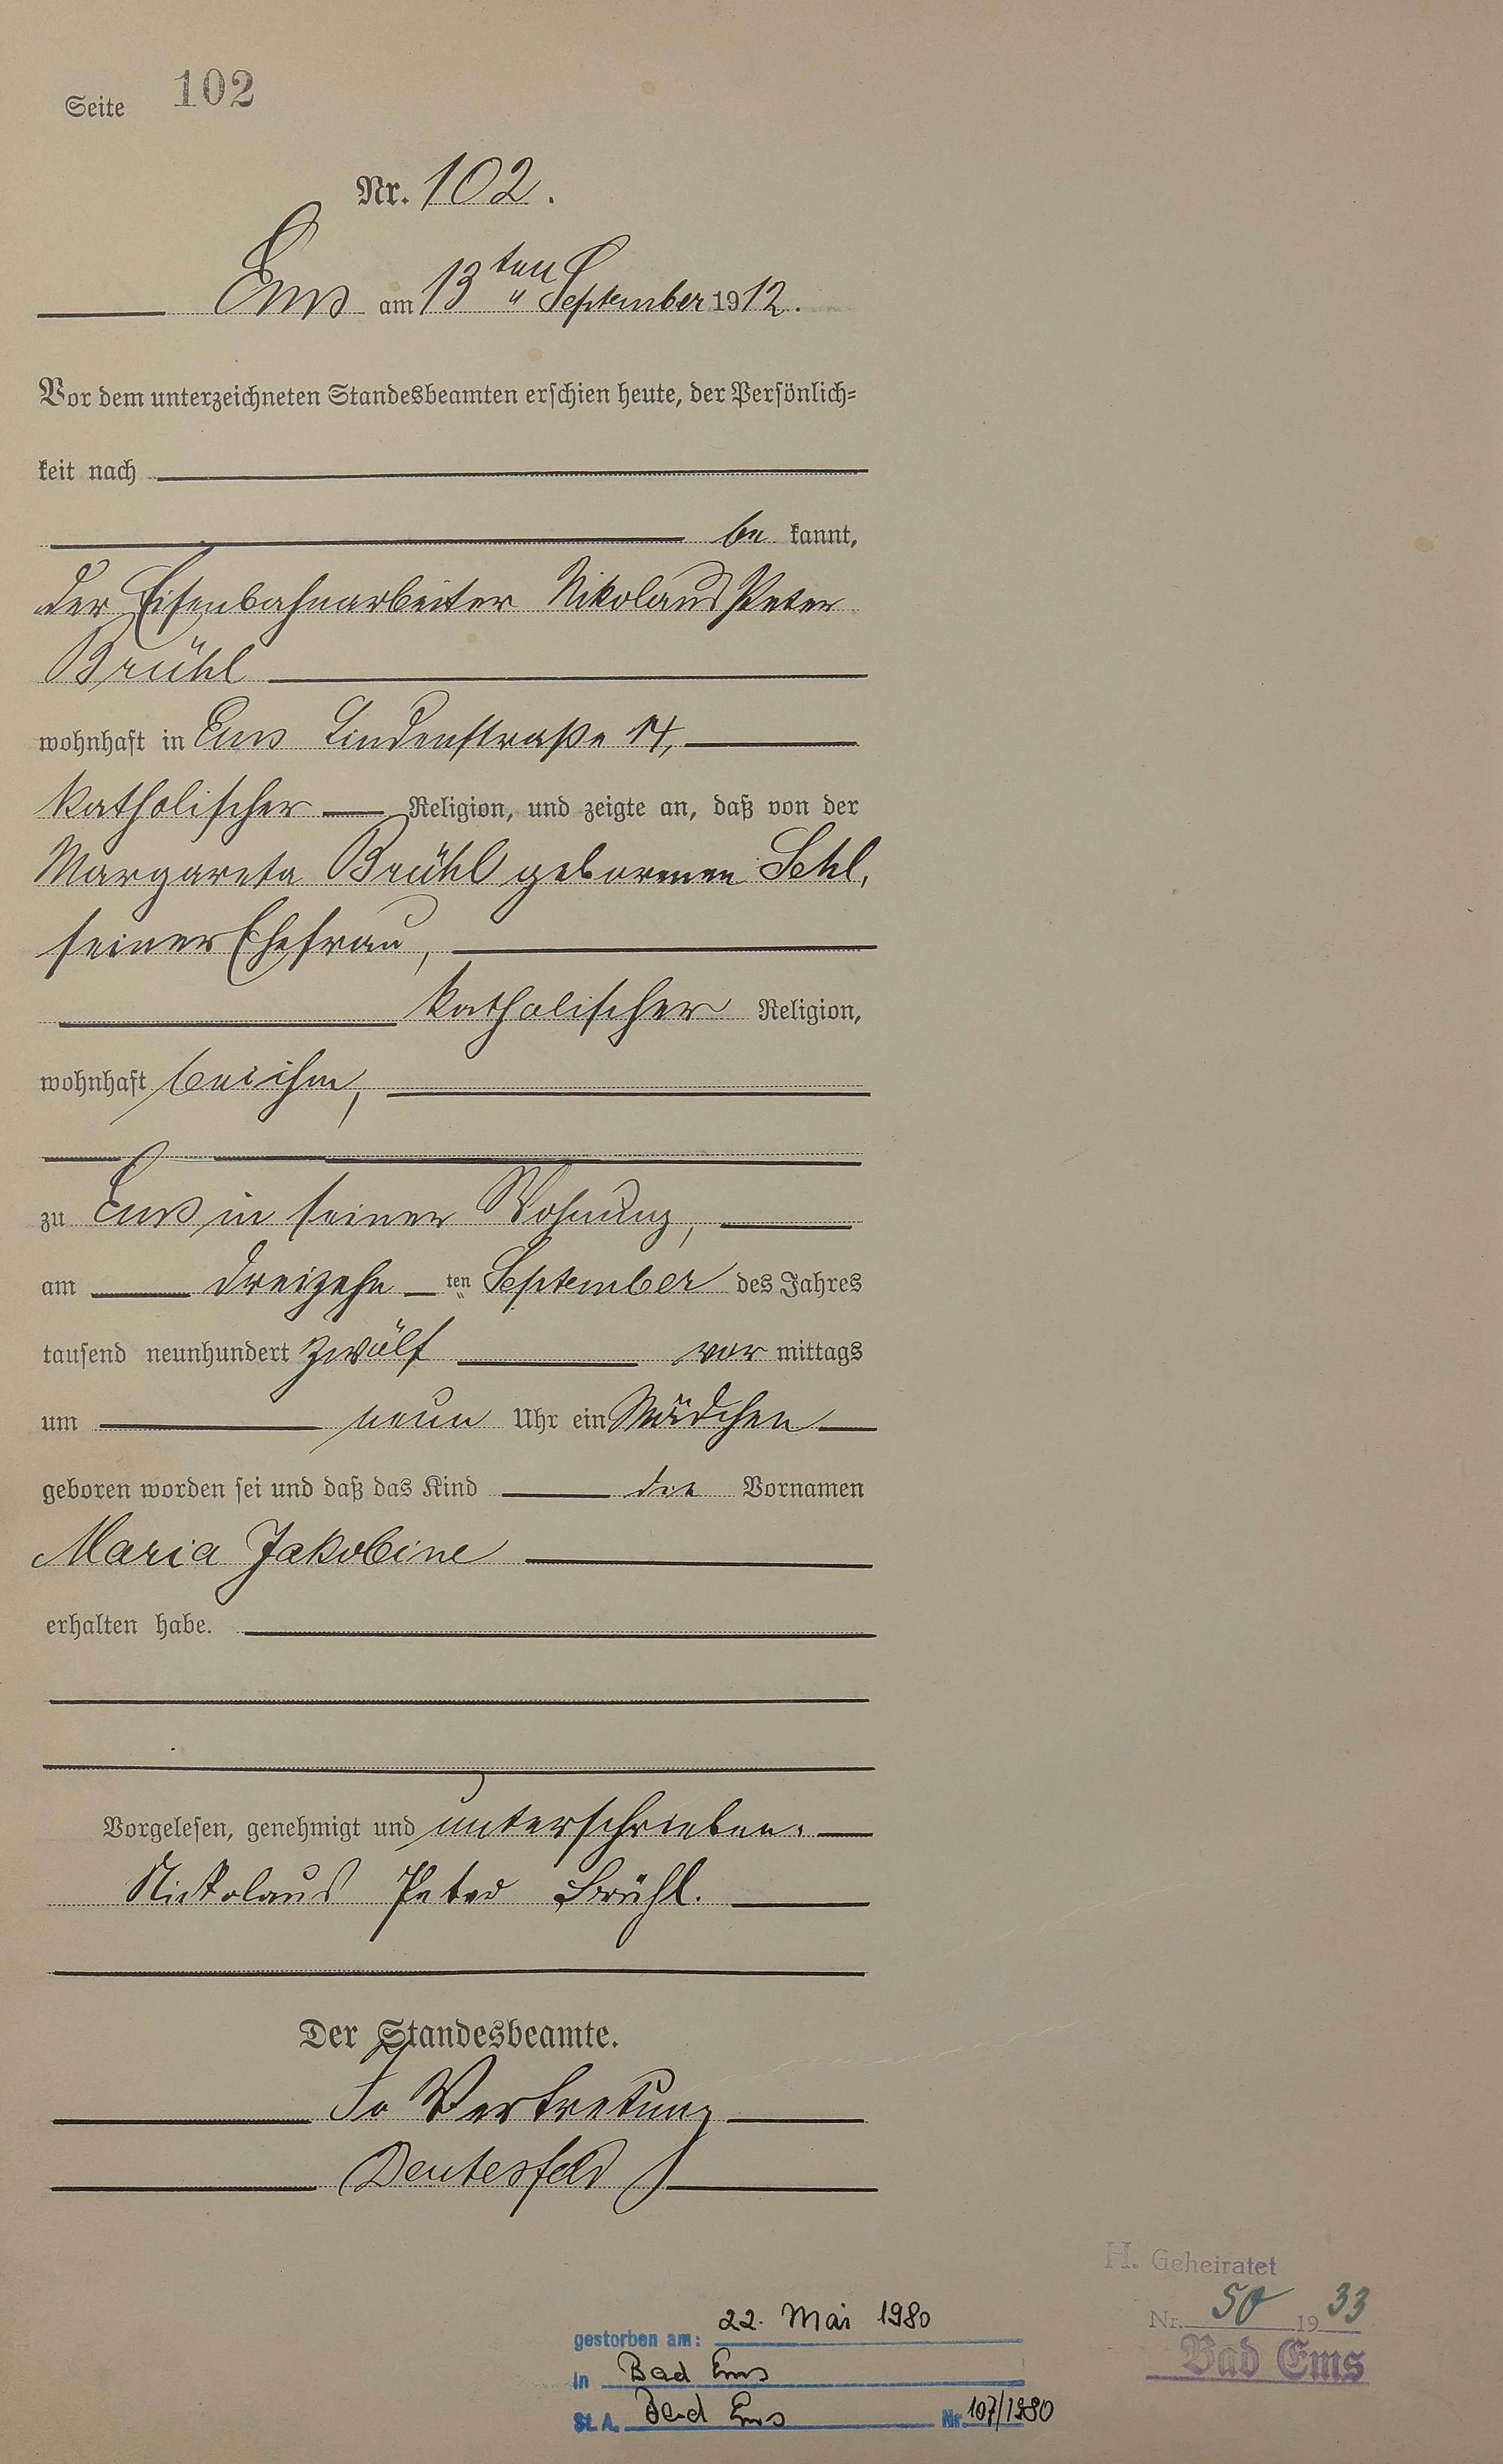 Seite 102
Nr. 102.
Ems am 13ten September 1912.
Vor dem unterzeichneten Standesbeamten erschien heute, der Persönlich=
keit nach
be kannt,
der Eisenbahnarbeiter Nikolaus Peter
Brühl
wohnhaft in Ems Lindenstraße 14,
katholischer Religion, und zeigte an, daß von der
Margareta Brühl geborenen Sehl,
seiner Ehefrau,
katholischer Religion,
wohnhaft bei ihm,
zu Ems in seiner Wohnung,
am dreizehn ten September des Jahres
tausend neunhundert zwölf vor mittags
um neun Uhr ein Mädchen
geboren worden sei und daß das Kind die Vornamen
Maria Jakobine
erhalten habe.
Vorgelesen, genehmigt und unterschrieben.
Nikolaus Peter Brühl.
Der Standesbeamte.
In Vertretung
H. Geheiratet
Nr. 50 1933
Bad Ems
gestorben am: 22. Mai 1980
in Bad Ems
St. A. Bad Ems Nr. 107/1980